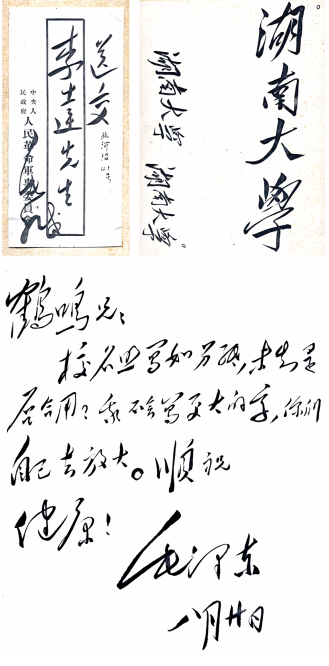 送交
李達先生
北河沿41号
中央人
民政府
人民革命軍事委員會
湖南大學
湖南大學 湖南大學。
鶴鳴兄：
校名照写如另紙，未知是
否合用？我不会写更大的字，你们
自己去放大。順祝
健康！
毛泽东
八月廿日